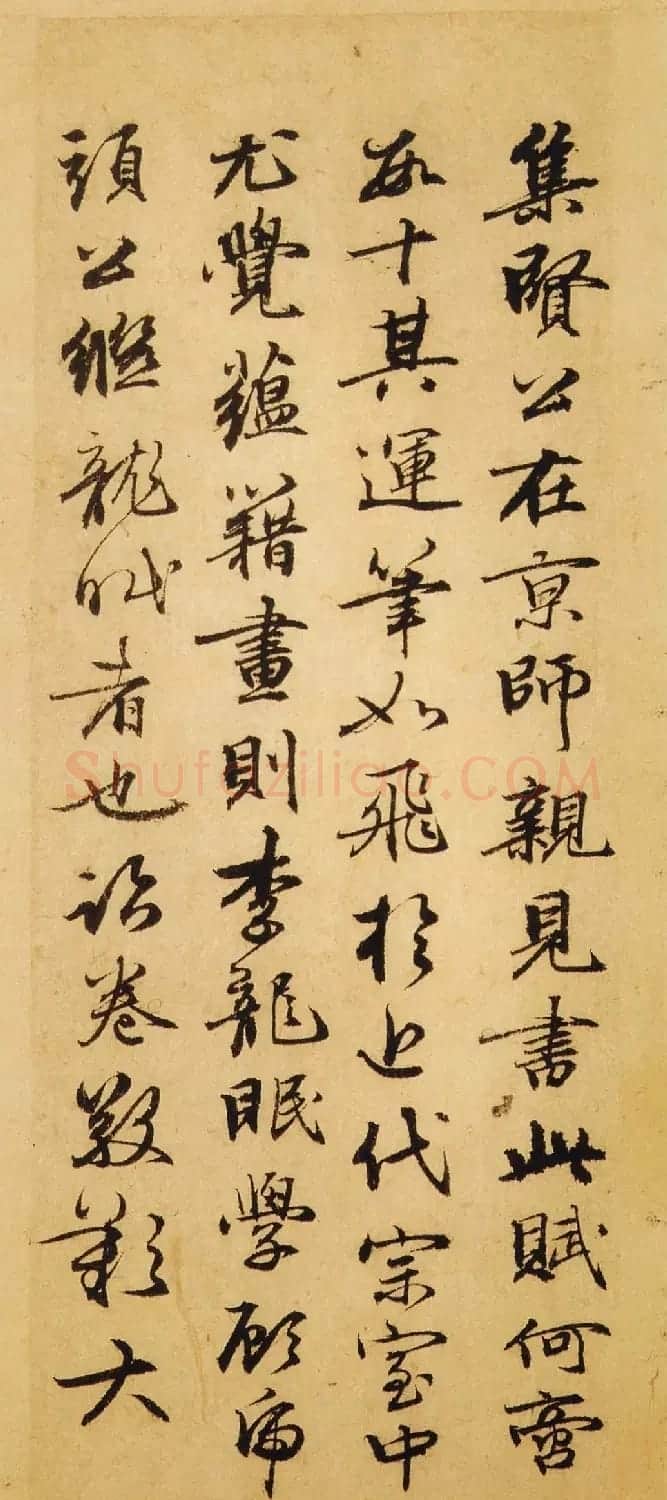 集賢公在京師親見書此賦何啻
數十其運筆如飛於近代宗室中
尤覺蘊籍畫則李龍眠學顧虎
頭公繼龍眠者也卷歎大
Shufaziliao.COM